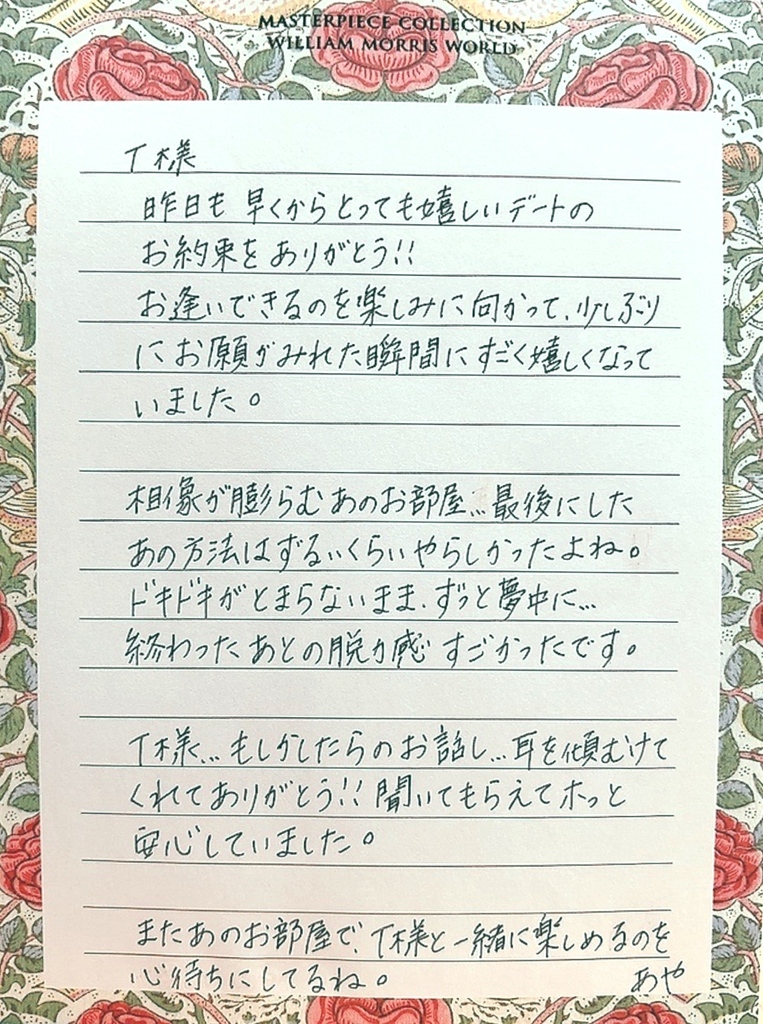 MASTERPIECE COLLECTION
WILLIAM MORRIS WORLD
T様
昨日も早くからとっても嬉しいデートの
お約束をありがとう!!
お逢いできるのを楽しみに向かって、少しぶり
にお願がみれた瞬間にすごく嬉しくなって
いました。
相像が膨らむあのお部屋...最後にした
あの方法はずるいくらいやらしかったよね。
ドキドキがとまらないまま、ずっと夢中に...
終わったあとの脱力感すごかったです。
T様...もしかしたらのお話し...耳を傾むけて
くれてありがとう!!聞いてもらえてホッと
安心していました。
またあのお部屋で、T様と一緒に楽しめるのを
心待ちにしてるね。 あや